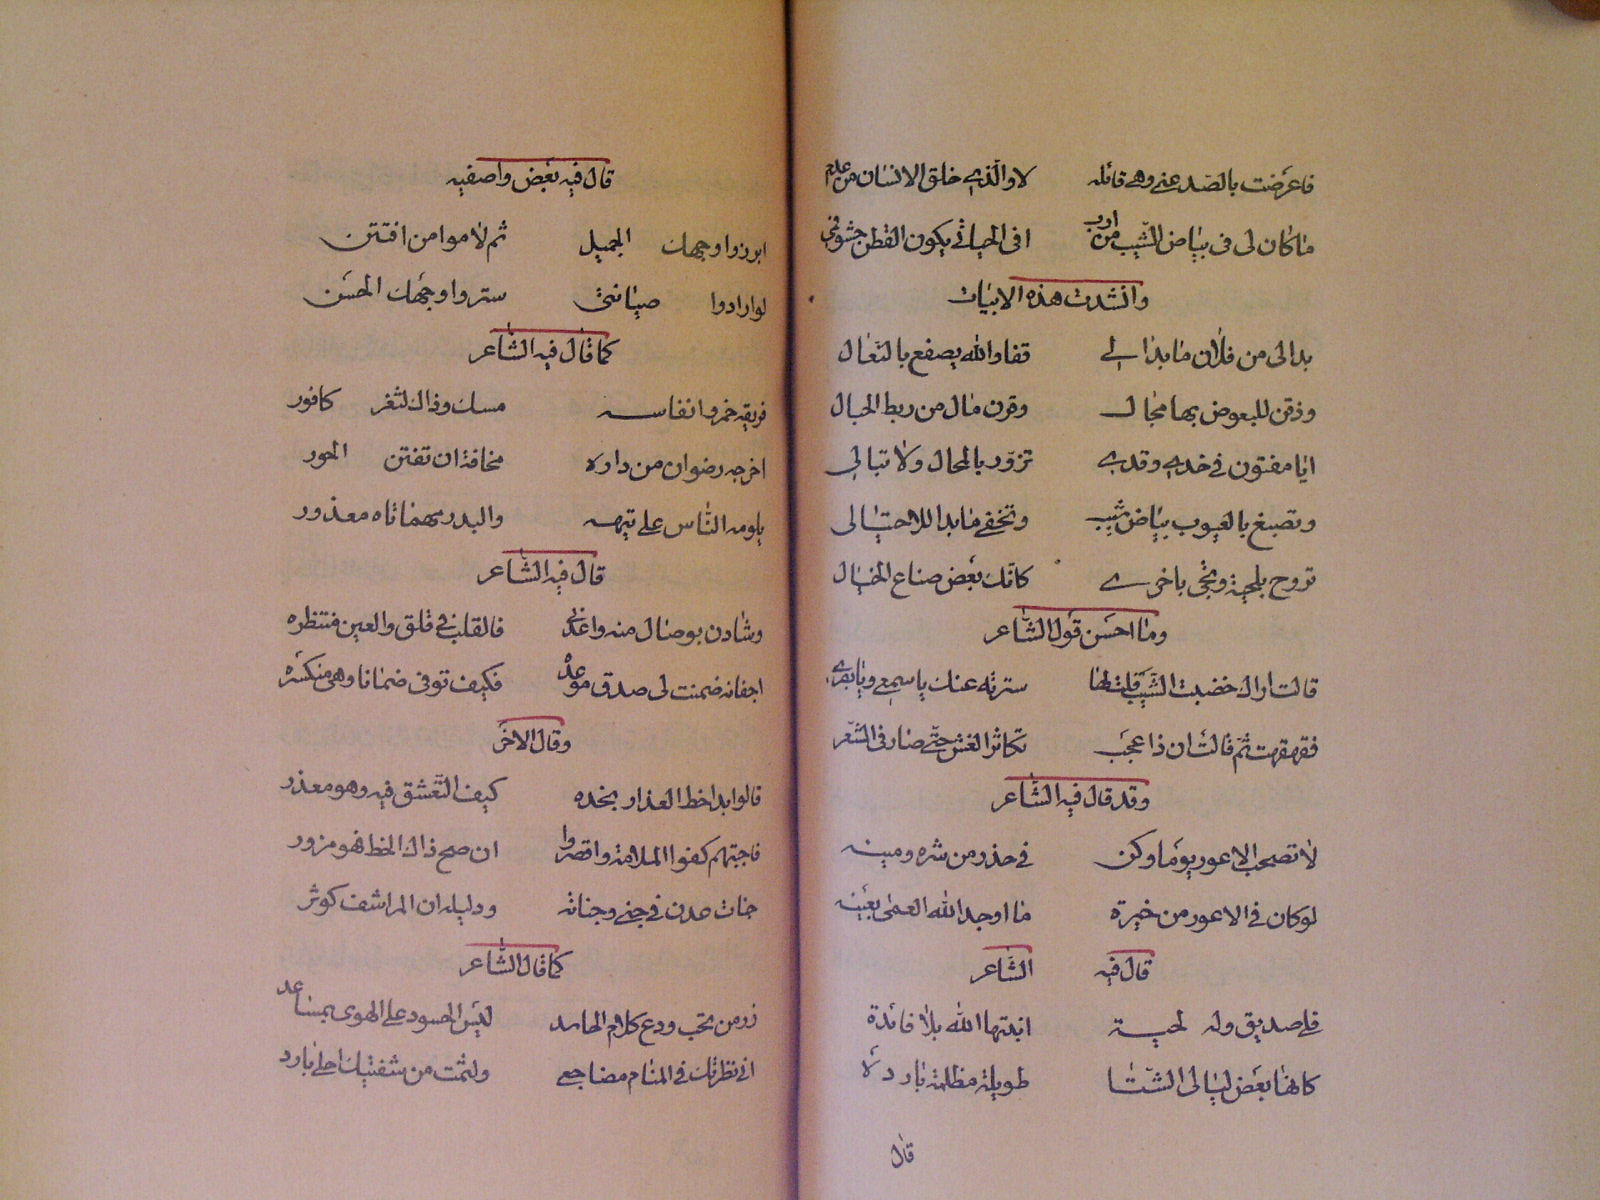 فاعرضت بالصد عنى وهى قائله لا والذى خلق الانسان من عدم
ما كان لى فى بياض الشيب من ارب افى الحياة يكون القطن حشو فمى
وانشدت هذه الابيات
بدا لى من فلان ما بدا لى قفا والله يصفع بالنعال
وذقن للبعوض بها مجال وقرن مال من ربط الحبال
ايا مفتون فى خدى وقدى تزور بالمحال ولا تبالى
وتصبغ بالعيوب بياض شيب وتخفى ما بدا للاحتيالى
تروح بلحية وتجى باخرى كانك بعض صناع الخيال
وما احسن قول الشاعر
قالت اراك خضبت الشيب قلت لها سترته عنك يا سمعى ويا بصرى
فقهقهت ثم قالت ان ذا عجب تكاثر الغش حتى صار فى الشعر
وقد قال فيه الشاعر
لا تصحب الاعور يوما وكن فى حذر من شره ومينه
لو كان فى الاعور من خيرة ما اوجد الله العمى بعينه
قال فيه الشاعر
فلى صديق وله لحية انبتها الله بلا فائدة
كانها بعض ليالى الشتا طويلة مظلمة باردة
قال
قال فيه بعض واصفيه
ابرزوا وجهك الجميل ثم لاموا من افتتن
لو ارادوا صيانتى ستروا وجهك الحسن
كما قال فيه الشاعر
فريقه خمر وانفاسه مسك وذاك لثغر كافور
اخرجه رضوان من داره مخافة ان تفتن الحور
يلومه الناس على تيهه والبدر مهما تاه معذور
قال فيه الشاعر
وشادن بوصال منه واعدنى فالقلب فى قلق والعين فتنظره
اجفانه ضمنت لى صدق موعده فكيف توفى ضمانا وهى منكسره
وقال الاخر
قالوا بدا خط العذار بخده كيف التعشق فيه وهو معذر
فاجبتهم كفوا الملامة واقصروا ان صح ذاك الخط فهو مزور
جنات عدن فى جنى وجناته ودليله ان المراشف كوثر
كما قال الشاعر
زر من تحب ودع كلام الحاسد ليس الحسود على الهوى بمساعد
انى نظرتك فى المنام مضاجعى ولثمت من شفتيك احلى بارد